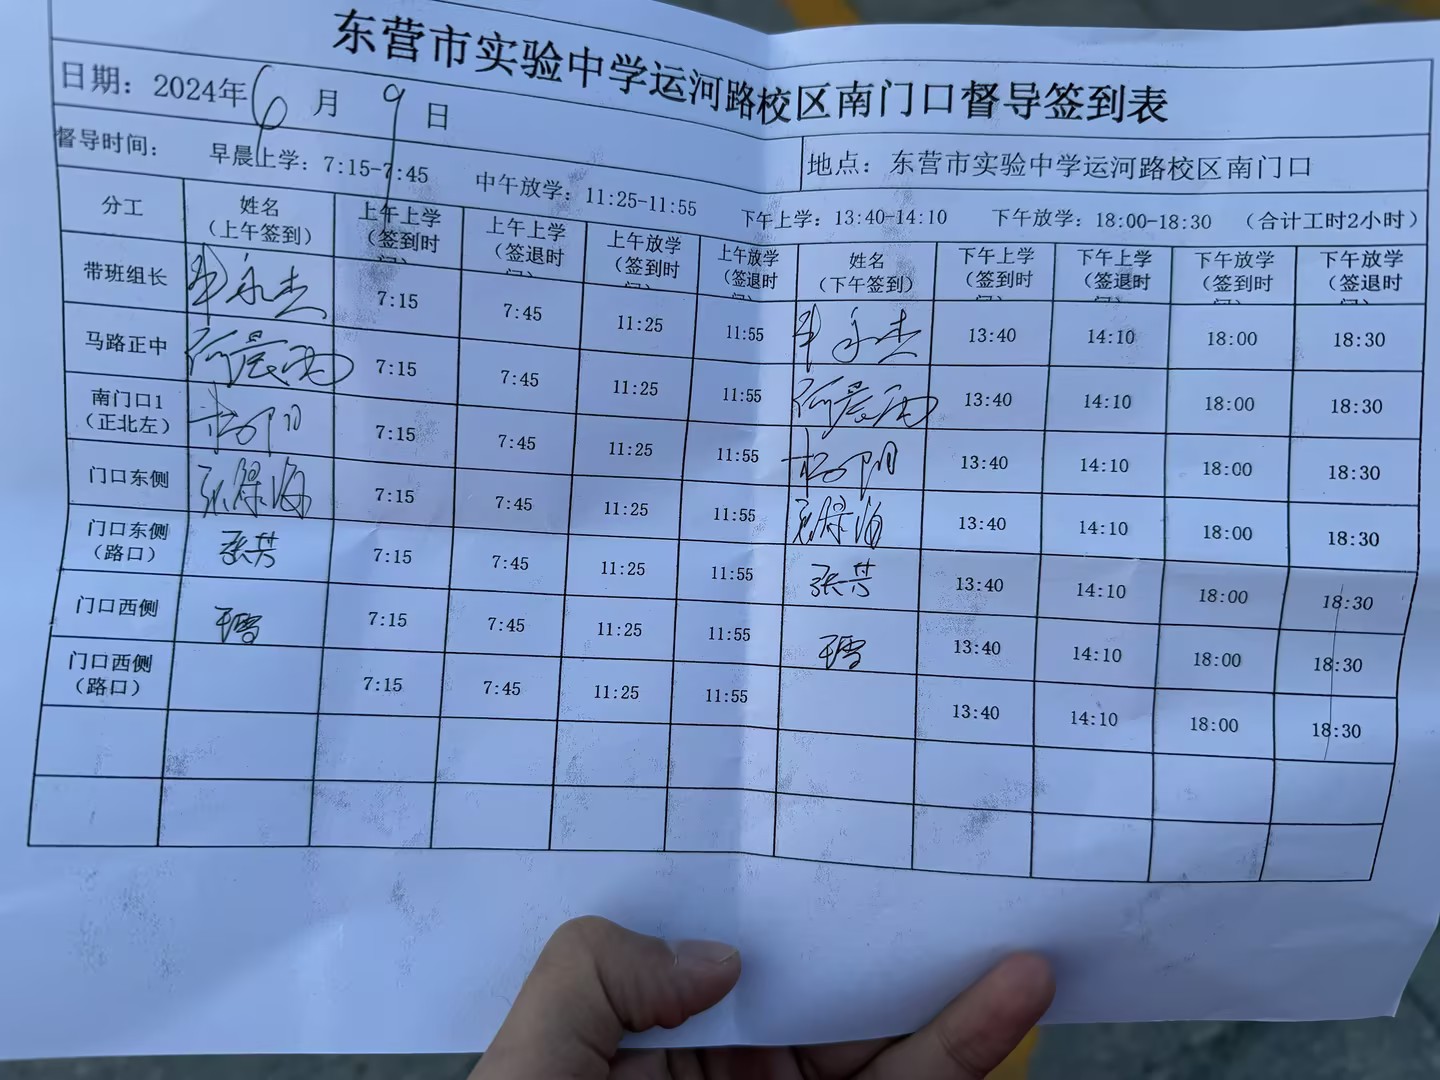 东营市实验中学运河路校区南门口督导签到表
日期：2024年6月9日
督导时间： 早晨上学：7:15-7:45 中午放学：11:25-11:55 下午上学：13:40-14:10 下午放学：18:00-18:30 （合计工时2小时）
地点：东营市实验中学运河路校区南门口
分工 姓名（上午签到） 上午上学（签到时间） 上午上学（签退时间） 上午放学（签到时间） 上午放学（签退时间） 姓名（下午签到） 下午上学（签到时间） 下午上学（签退时间） 下午放学（签到时间） 下午放学（签退时间）
带班组长 永杰 7:15 7:45 11:25 11:55 永杰 13:40 14:10 18:00 18:30
马路正中 晨雨 7:15 7:45 11:25 11:55 晨雨 13:40 14:10 18:00 18:30
南门口1（正北左） 7:15 7:45 11:25 11:55 13:40 14:10 18:00 18:30
门口东侧 7:15 7:45 11:25 11:55 13:40 14:10 18:00 18:30
门口东侧（路口） 张芳 7:15 7:45 11:25 11:55 张芳 13:40 14:10 18:00 18:30
门口西侧 王雪 7:15 7:45 11:25 11:55 王雪 13:40 14:10 18:00 18:30
门口西侧（路口） 7:15 7:45 11:25 11:55 13:40 14:10 18:00 18:30